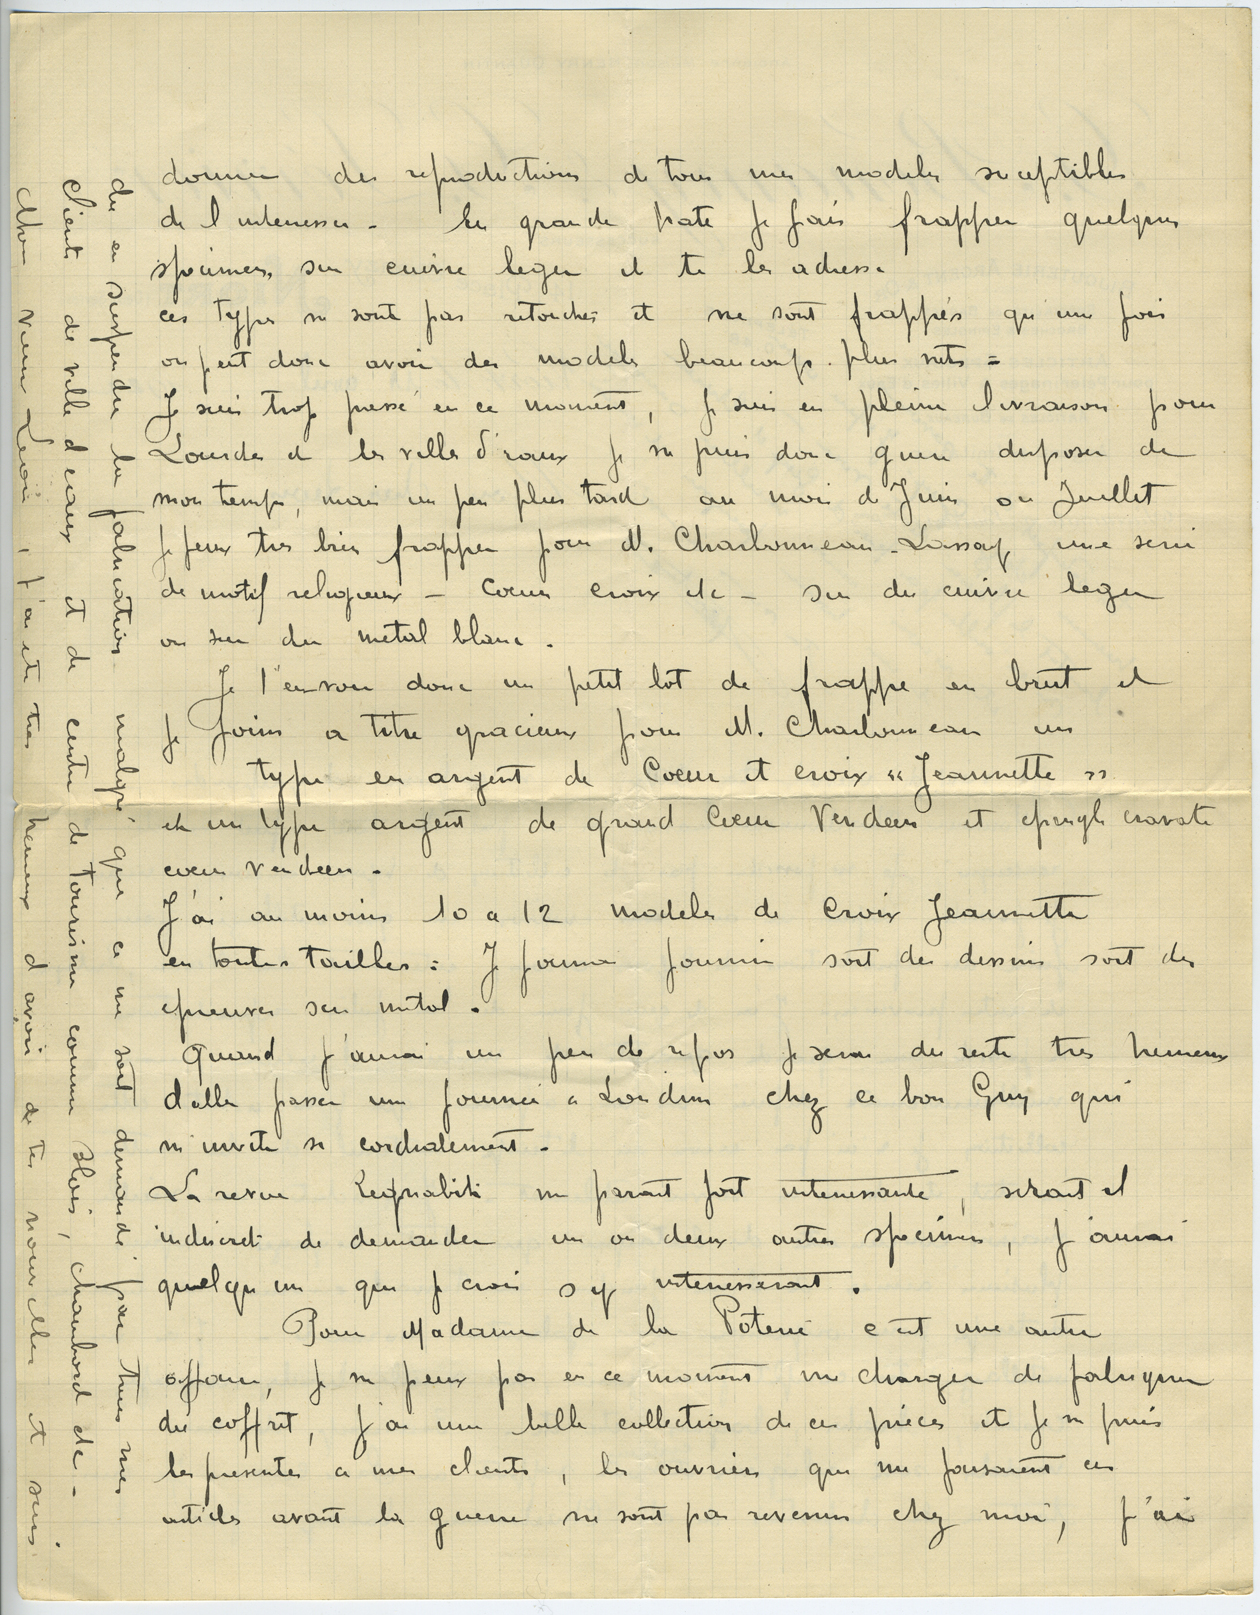 donner des reproductions de tous mes modeles suceptibles
de l interesser - En grande hate Je fais frapper quelques
specimens sur cuivre leger et te les adresse
ces types ne sont pas retouches et ne sont frappés qu une fois
on peut donc avoir des modeles beaucoup plus nets =
Je suis trop pressé en ce moment, Je suis en pleine livraison pour
Lourdes et les villes d'eaux Je ne puis donc guere disposer de
mon temps, mais un peu plus tard au mois d Juin ou Juillet
Je peux tres bien frapper pour M. Charbonneau-Lassay une serie
de motif religieux - Coeur croix etc - sur du cuivre leger
ou sur du metal blanc.
Je t'envoie donc un petit lot de frappe en brut et
Je Joins a titre gracieux pour M. Charbonneau un
type en argent de Coeur et croix " Jeannette "
et un type argent de grand Coeur Vendeen et epingle cravate
coeur vendeen.
J'ai au moins 10 a 12 modeles de Croix Jeannette
en toutes tailles : Je fournir soit des dessins soit des
epreuves sur metal.
Quand J'aurai un peu de repos Je serai du reste tres heureux
d aller passer une Journée a Loudun chez ce bon Guy qui
m invite si cordialement.
La revue Regnabit me parait fort interessante, serait il
indiscret de demander un ou deux autres specimens, J'aurai
quelqu un que Je crois s y interesserait.
Pour Madame de la Poterie c est une autre
affaire, Je ne peux pas en ce moment me charger de fabriquer
du coffret, J'ai une belle collection de ces pièces et Je ne puis
les presenter a mes clients, les ouvriers qui me faisaient ces
articles avant la guerre ne sont pas revenus chez moi, J'ai
du en suspendre la fabrication malgré que ce me soit demandé par tous mes
clients de ville d eaux et de centre de Tourisme comme Blois, Chambord etc -
Mon vieux J'ai ete tres heureux d avoir de tes nouvelles et suis